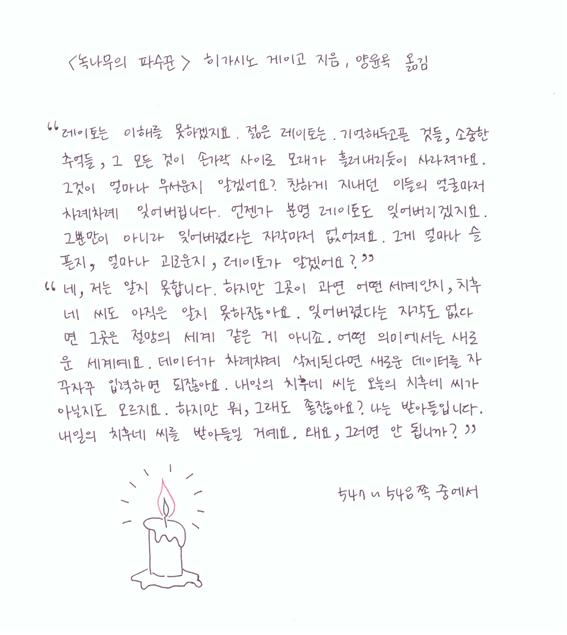 <녹나무의 파수꾼> 히가시노 게이고 지음, 양윤옥 옮김
“레이토는 이해를 못하겠지요. 젊은 레이토는. 기억해두고픈 것들, 소중한
추억들, 그 모든 것이 손가락 사이로 모래가 흘러내리듯이 사라져가요.
그것이 얼마나 무서운지 알겠어요? 친하게 지내던 이들의 얼굴마저
차례차례 잊어버립니다. 언젠가 분명 레이토도 잊어버리겠지요.
그뿐만이 아니라 잊어버렸다는 자각마저 없어져요. 그게 얼마나 슬
픈지, 얼마나 괴로운지, 레이토가 알겠어요?”
“네, 저는 알지 못합니다. 하지만 그곳이 과연 어떤 세계인지, 치후
네 씨도 아직은 알지 못하잖아요. 잊어버렸다는 자각도 없다
면 그곳은 절망의 세계 같은 게 아니죠. 어떤 의미에서는 새로
운 세계예요. 데이터가 차례차례 삭제된다면 새로운 데이터를 자
꾸자꾸 입력하면 되잖아요. 내일의 치후네 씨는 오늘의 치후네 씨가
아닐지도 모르지요. 하지만 뭐, 그래도 좋잖아요? 나는 받아들입니다.
내일의 치후네 씨를 받아들일 거예요. 왜요, 그러면 안 됩니까?”
쪽 중에서